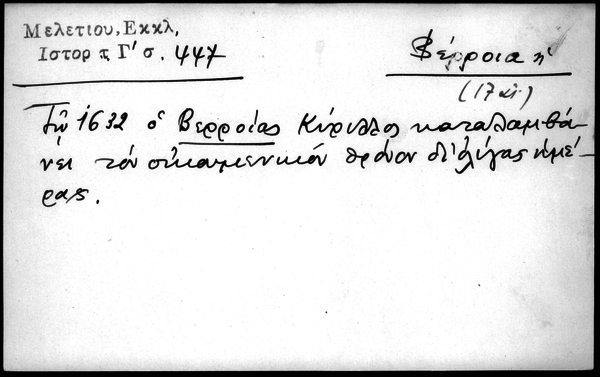 Μελετιου, Εκκλ,
Ιστορ τ Γ' σ. 447
Βέρροια ἡ
(17 αἰ.)
Τῷ 1632 ὁ Βερροίας Κύριλλος καταλαμβά-
νει τὸν οἰκουμενικόν θρόνον δι' ὀλίγας ἡμέ-
ρας.